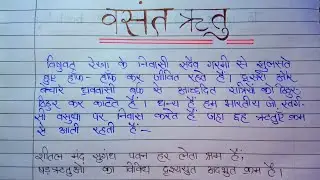 वसंत ऋतु
विषुवत रेखा के निवासी सदैव गरमी से झुलसते
हुए हाँफ-हाँफ कर जीवित रहते हैं। दूसरी ओर
बेचारे ध्रुववासी बर्फ से आच्छादित रात्रियों को ठिठुर-
ठिठुर कर काटते हैं। धन्य हैं हम भारतीय जो स्वर्ग-
सी वसुधा पर निवास करते हैं जहाँ छह ऋतुएँ क्रम
से आती रहती हैं -
शीतल मंद सुगंध पवन हर लेता श्रम है,
षड्ऋतुओं का विविध दृश्ययुत अद्भुत क्रम है।